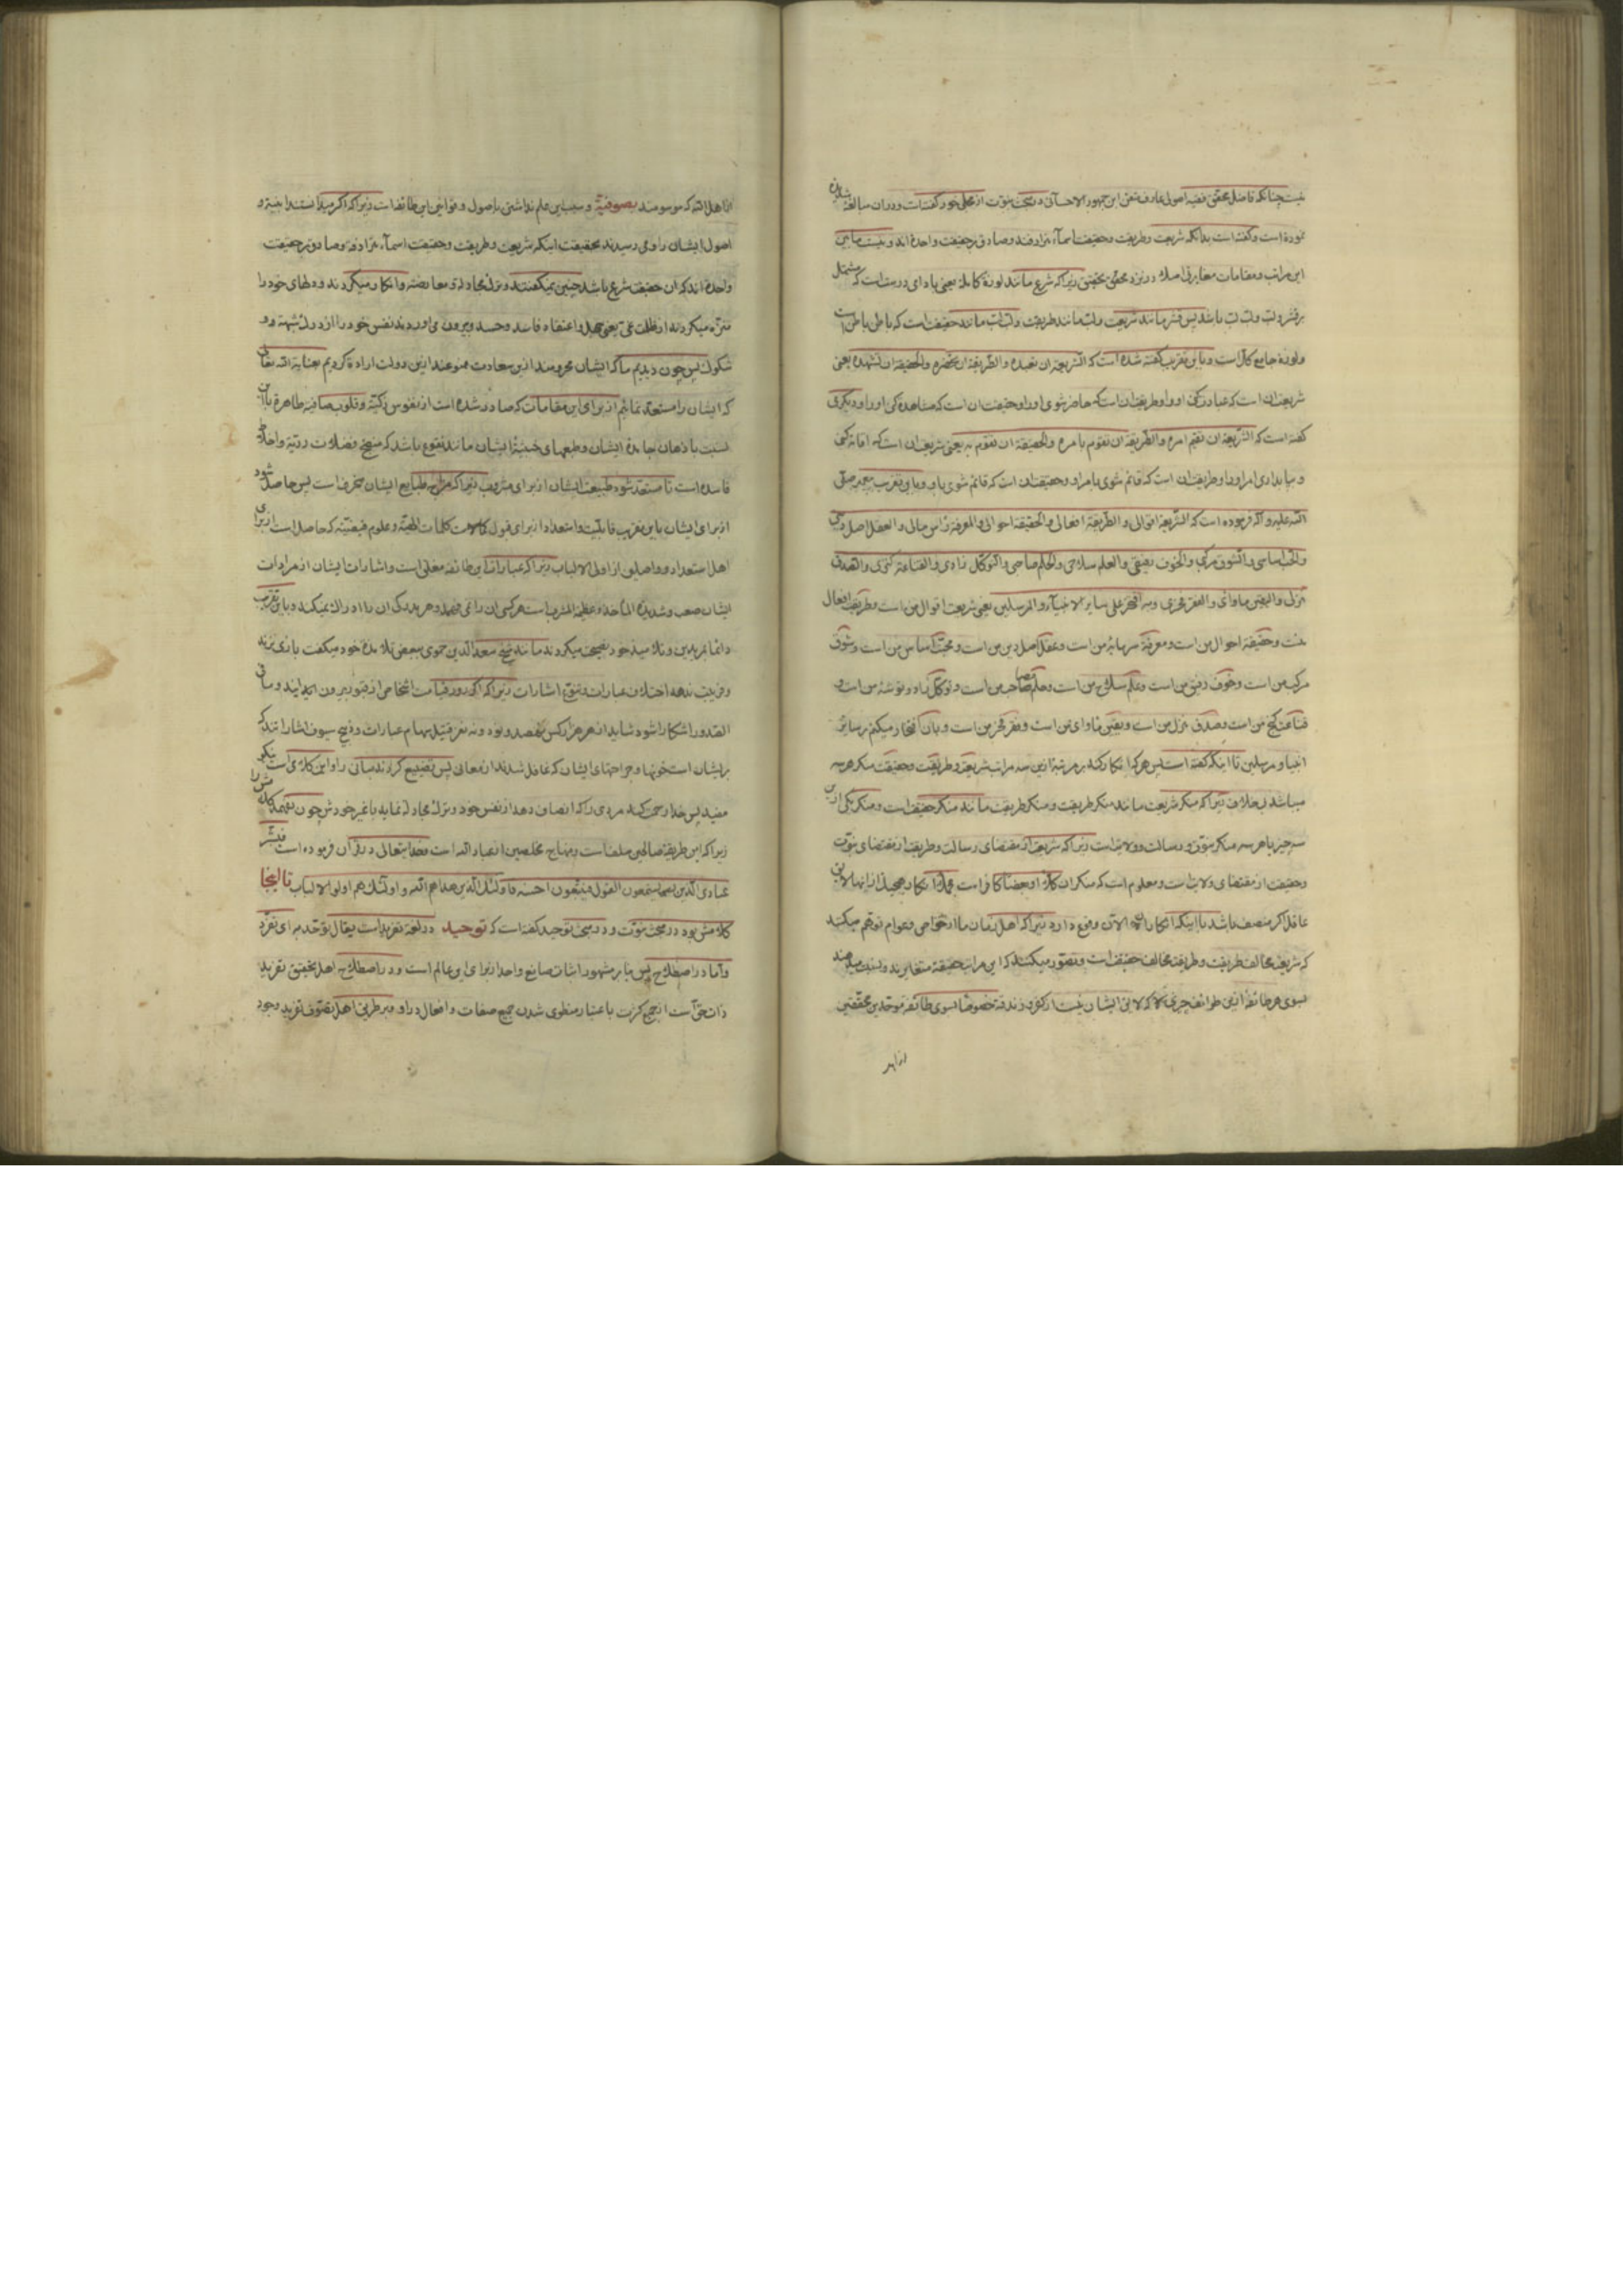 نیست چنانکه فاضل محقق فقیه اصولی عارف متقن ابن جمهور الاحسائی در بحث نبوت از مجلی خود گفته است و در آن مبالغه
نموده است و گفته است بدانکه شریعت و طریقت و حقیقت اسمآء مترادفند و صادق بر حقیقت واحده اند و نیست مابین
این مراتب و مقامات مغایرتی اصلا در نزد محقق تحقیق زیرا که شرع مانند لوزة کامله یعنی بادامی درست است که مشتمل
بر قشر و لب و لب لب باشد پس قشر مانند شریعت و لب مانند طریقت و لب لب مانند حقیقت است که باطن باطن است
و لوزه جامع کل است و باین تقریب گفته شده است که الشریعة ان تعبده و الطریقة ان تحضره و الحقیقة ان تشهده یعنی
شریعت آن است که عبادت کنی او را و طریقت آن است که حاضر شوی او را و حقیقت آن است که مشاهده کنی او را و دیگری
گفته است که الشریعة ان تقیم امره و الطریقة ان تقوم بامره و الحقیقة ان تقوم به یعنی شریعت آن است که اقامه کنی
و بپا بداری امر او را و طریقت آن است که قائم شوی بامر او و حقیقت آن است که قائم شوی باو و باین تقریب پیغمبر صلی
الله علیه و آله فرموده است که الشریعة اقوالی و الطریقة افعالی و الحقیقة احوالی و المعرفة راس مالی و العقل اصل دینی
و الحب اساسی و الشوق مرکبی و الخوف رفیقی و العلم سلاحی و الحلم صاحبی و التوکل زادی و القناعة کنزی و الصدق
منزلی و الیقین ماوای و الفقر فخری و به افتخر علی سایر الانبیآء و المرسلین یعنی شریعت اقوال من است و طریقت افعال
منست و حقیقة احوال من است و معرفة سرمایه من است و عقل اصل دین من است و محبت اساس من است و شوق
مرکب من است و خوف رفیق من است و علم سلاح من است و حلم صاحب من است و توکل زاد و توشه من است و
قناعت گنج من است و صدق منزل من است و یقین ماوای من است و فقر فخر من است و بآن افتخار میکنم بر سایر
انبیا و مرسلین تا اینکه گفته است پس هر که انکار کند بر مرتبة ازین سه مراتب شریعة و طریقت و حقیقت منکر هر سه
میباشد بلا خلاف زیرا که منکر شریعت مانند منکر طریقت و منکر طریقت مانند منکر حقیقت است و منکر یکی ازین
سه چیز یا هر سه منکر نبوت و رسالت و ولایت است زیرا که شریعت از مقتضای رسالت و طریقت از مقتضای نبوت
و حقیقت از مقتضای ولایت است و معلوم است که منکر آن کلا او بعضا کافر است
عاقل اگر منصف باشد با اینکه انکار الی الآن وقوع دارد زیرا که اهل زمان ما از خواص و عوام توهم میکنند
که شریعت مخالف طریقت و طریقت مخالف حقیقت است و تصور میکنند که این مراتب حقیقة متغایرند و نسبت میدهند
بسوی هر طائفة ازین طوائف چیزی را که لایق ایشان نیست از کفر و زندقه خصوصا بسوی طائفه موحدین محققین
از اهل الله که موسومند بصوفیة و سبب این علم نداشتن باصول و قوانین این طائفه است زیرا که اگر میدانستند ابنیه و
اصول ایشان را و می رسیدند بحقیقت اینکه شریعت و طریقت و حقیقت اسمآء مترادفه و صادق بر حقیقت
واحده اند که آن حقیقت شرع باشد چنین نمیگفتند و ترک مجادله و معارضه و انکار میکردند و دلهای خود را
منزه میکردند از ظلمت غی یعنی جهل و اعتقاد فاسد و حسد و بیرون می آوردند نفس خود را از درک شبهه و
شکوک پس چون دیدیم ما که ایشان محرومند ازین سعادت ممنوعند ازین دولت اراده کردیم بعنایة الله تعالی
که ایشان را مستعد نمائیم از برای این مقامات که صادر شده است از نفوس زکیه و قلوب صافیه طاهره
نسبت باذهان جامده ایشان و طبعهای خبیثة ایشان مانند نقوع باشد که منضج فضلات ردیه و اخلاط
فاسده است تا مستعد شود طبیعت ایشان از برای مشروب زیرا که مزاج طبایع ایشان منحرف است پس حاصل شود
از برای ایشان باین تقریب قابلیت و استعداد از برای قبول کلمات الهیة و علوم حقیقیه که حاصل است از برای
اهل استعداد و واصلین از اولی الالباب زیرا که عبارات این طائفه مغلق است و اشارات ایشان از مرادات
ایشان صعب و شدیدة المأخذ و عظیمة المشرب است هر کسی آن را نمی فهمد و هر مدرک آن را ادراک نمیکند و باین تقریب
دائما بمریدین و تلامیذ خود نصیحت میکردند مانند شیخ سعد الدین حموی ببعض تلامذه خود میگفت بازی نزند
و فریب ندهد اختلاف عبارات و تنوع اشارات زیرا که اگر روز قیامت اشخاص از قبور بیرون آیند و ما فی
الصدور آشکارا شود شاید از هر هزار کس نهصد و نود و نه نفر قتیل سهام عبارات و ذبیح سیوف اشاراتند که
بر ایشان است خونها و جراحتهای ایشان که غافل شدند از معانی پس تضییع کردند مبانی را و این کلامی است نیکو
مفید پس خدا رحمت کند مردی را که انصاف دهد از نفس خود و ترک مجادله نماید با غیر خودش چون
زیرا که این طریقة صالحین سلف است و منهاج مخلصین انصار الله است و خدا یتعالی در قرآن فرموده است فبشر
عبادی الذین یستمعون القول فیتبعون احسنه فاولئک الذین هداهم الله و اولئک هم اولو الالباب تا اینجا
کلامش بود در مبحث نبوت و در مبحث توحید گفته است که توحید در لغة تفرید است یقال توحد برای تفرد
و اما در اصطلاح پس بنا بر مشهور اثبات صانع واحد از برای این عالم است و در اصطلاح اهل تحقیق تفرید
ذات حق است از جمیع کثرت باعتبار منطوی شدن جمیع صفات و افعال در او و بر طریق اهل تصوف تفرید وجود